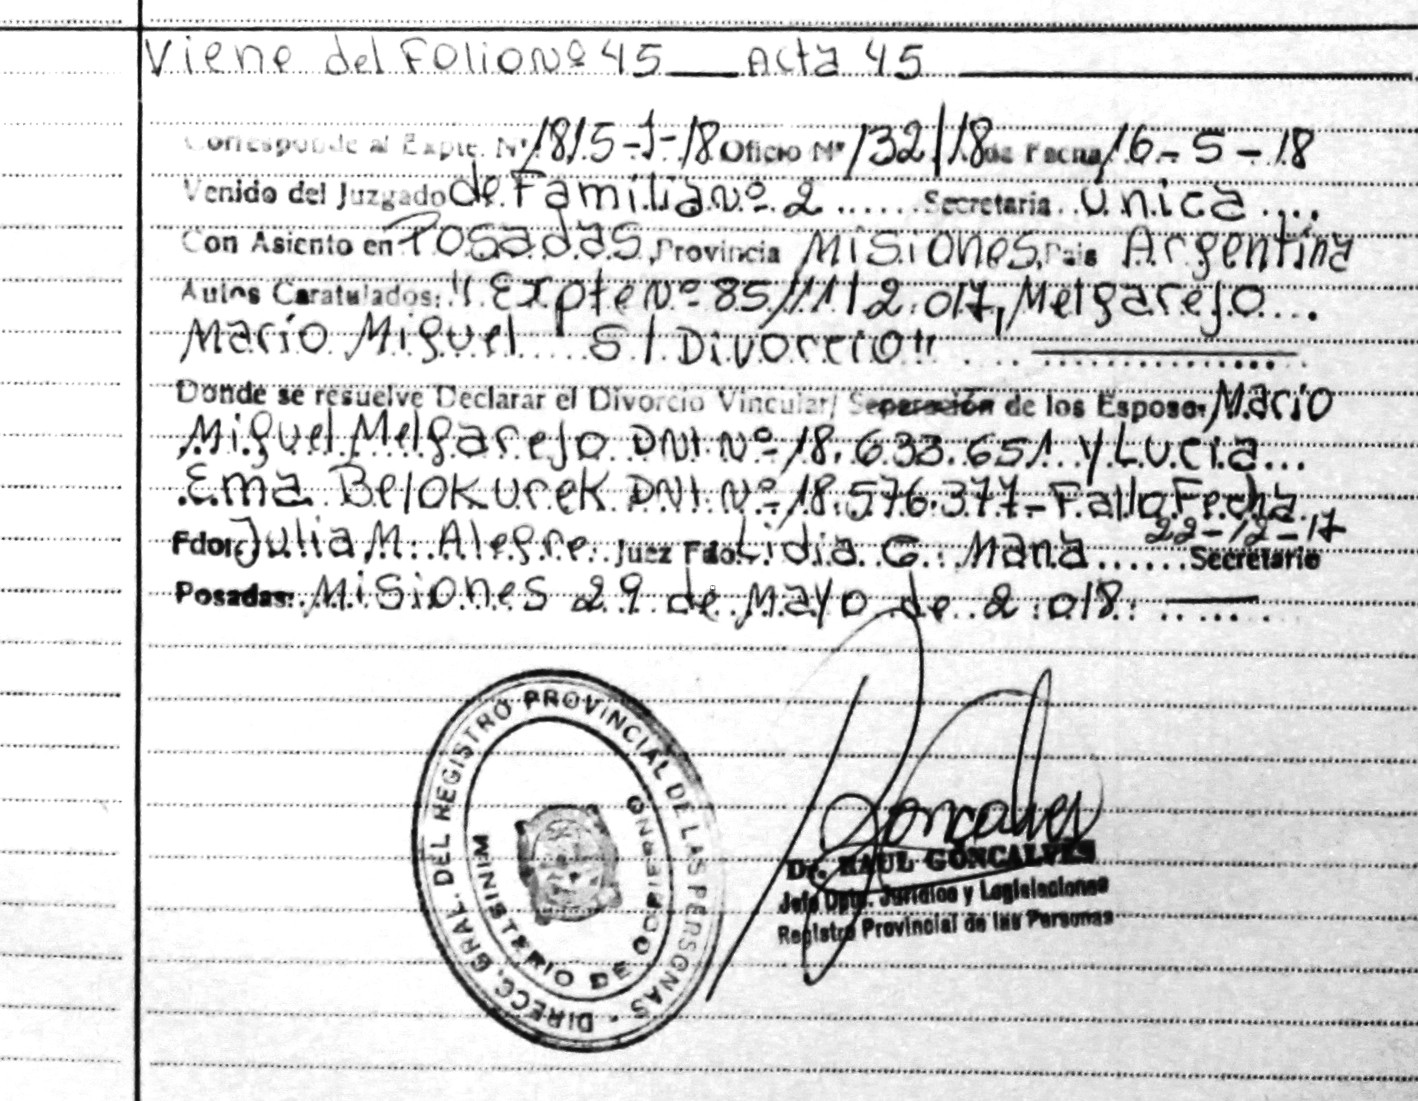 Viene del Folio Nº 45 ___ Acta 45
Corresponde al Expte. Nº 1815-J-18 Oficio Nº 132/18 de Fecha 16-5-18
Venido del Juzgado de Familia Nº 2 ...... Secretaria .. única ....
Con Asiento en Posadas, Provincia Misiones, Pais Argentina
Autos Caratulados: "Expte Nº 85111/2.017, Melgarejo ....
Mario Miguel S/Divorcio"
Donde se resuelve Declarar el Divorcio Vincular/ Separación de los Esposos Mario
Miguel Melgarejo DNI Nº 18.633.651 y Lucia ...
Ema Belokurek DNI Nº 18.576.377- Fallo Fecha
22-12-17
Fdo: Julia M. Alegre. Juez Fdo. Lidia G. Mana ...... Secretario
Posadas: Misiones 29 de Mayo de 2.018.
DIRECC. GRAL. DEL REGISTRO PROVINCIAL DE LAS PERSONAS -
MINISTERIO DE GOBIERNO
Goncalves
Dr. RAUL GONCALVES
Jefe Dpto. Jurídico y Legislaciones
Registro Provincial de las Personas